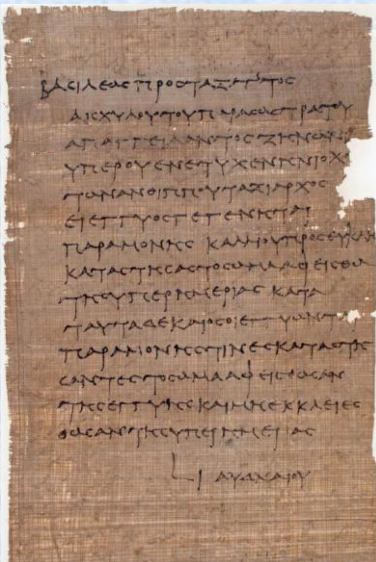 ΒΑΣΙΛΕΩΣ ΠΡΟΣΤΑΞΑΝΤΟΣ
ΑΙΣΧΥΛΟΥ ΤΟΥ ΠΑΡΑ ΣΩΣΤΡΑΤΟΥ
ΑΠΑΓΓΕΙΛΑΝΤΟΣ
ΥΠΕΡ ΟΥ ΕΝΕΤΥΧΕΝ ΗΝΙΟΧ
ΤΩΝ ΑΝΘΙΠΠΟΥ ΤΑΞΙΑΡΧΟΣ
ΕΙ ΕΓΓΥΟΣ ΓΕΓΕΝΗΤΑΙ
ΠΑΡΑΜΟΝΗΣ
ΚΑΤΑΣΤΗΣΑΣ ΤΟ ΣΩΜΑ ΑΦΕΙΣΘΩ
ΤΗΣ ΥΠΕΡΗΜΕΡΙΑΣ ΚΑΤΑ
ΤΑΥΤΑ ΔΕ ΚΑΙ ΟΣΟΙ ΕΓΓΥΩΝΤΑΙ
ΠΑΡΑΜΟΝΗΣ ΤΙΝΕΣ ΚΑΤΑΣΤΗ
ΣΑΝΤΕΣ ΤΟ ΣΩΜΑ ΑΦΕΙΣΘΩΣΑΝ
ΤΗΣ ΕΓΓΥΗΣ ΚΑΙ ΜΗ ΕΚΚΛΕΙΕΣ
ΘΩΣΑΝ ΤΗΣ ΥΠΕΡΗΜΕΡΙΑΣ
ΑΥΔΝΑΙΟΥ